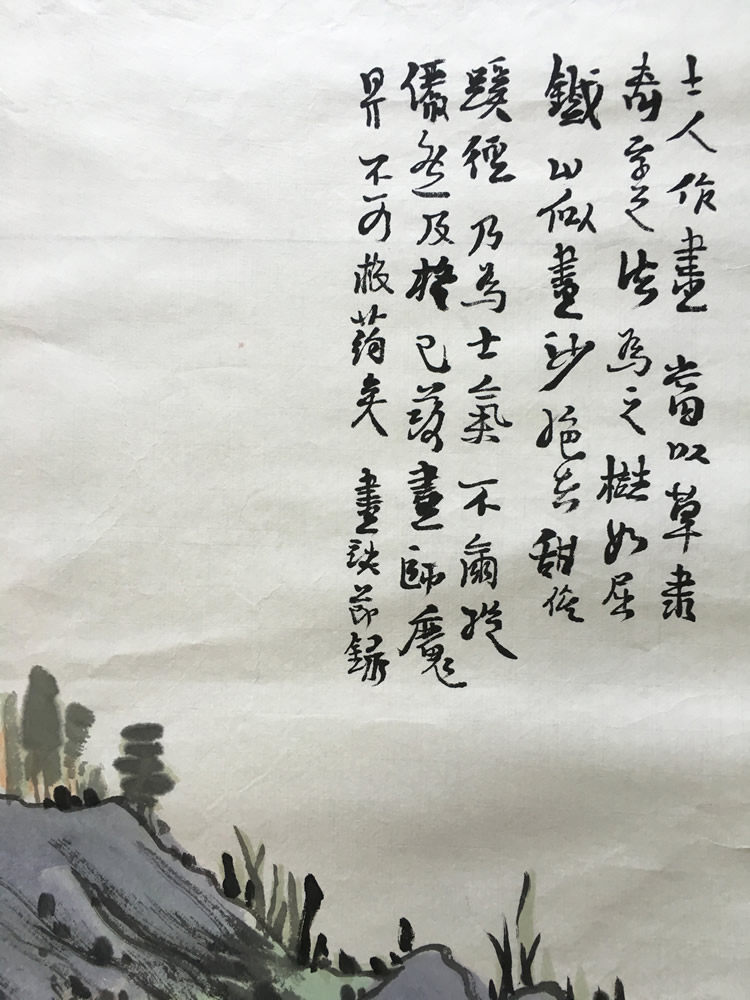 士人作畫當以草隸
奇字之法為之樹如屈
鐵山似畫沙絕去甜俗
蹊徑乃為士氣不爾縱
儼然及格已落畫師魔
界不可救藥矣 畫訣節錄